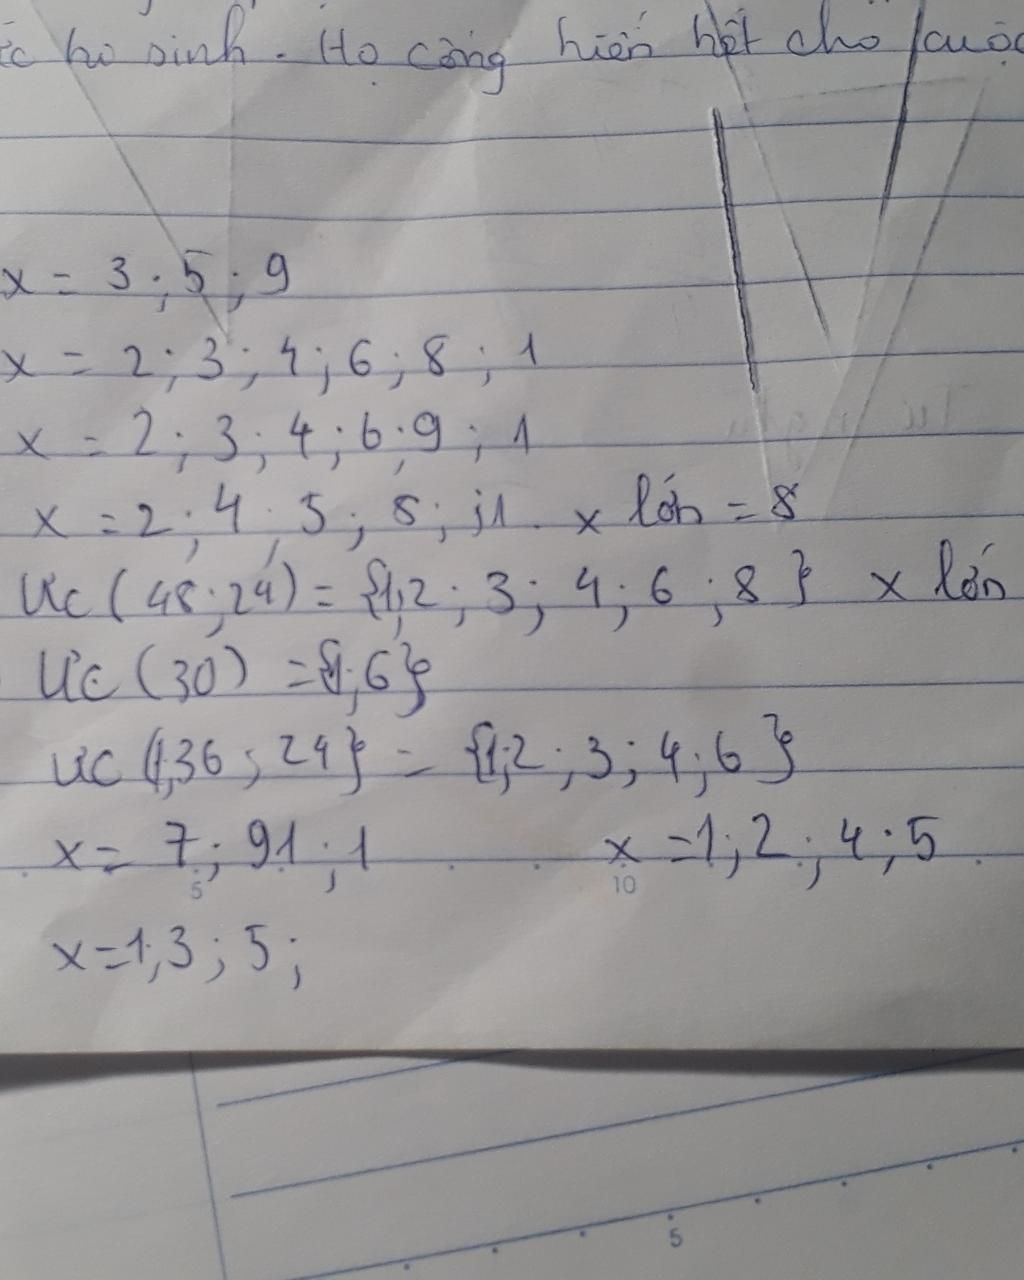 hi sinh. Họ cống hiến hết cho cuộc
x = 3 ; 5 ; 9
x = 2 ; 3 ; 4 ; 6 ; 8 ; 1
x = 2 ; 3 ; 4 ; 6 ; 9 ; 1
x = 2 ; 4 ; 5 ; 8 ; ; 1 . x lớn = 8
ƯC ( 48 ; 24 ) = { 1 ; 2 ; 3 ; 4 ; 6 ; 8 } x lớn
ƯC ( 30 ) = { 1 ; 6 }
ƯC ( 1 ; 36 ; 24 } = { 1 ; 2 ; 3 ; 4 ; 6 }
x = 7 ; 91 ; 1 x = 1 ; 2 ; 4 ; 5
5 10
x = 1 , 3 ; 5 ;
5